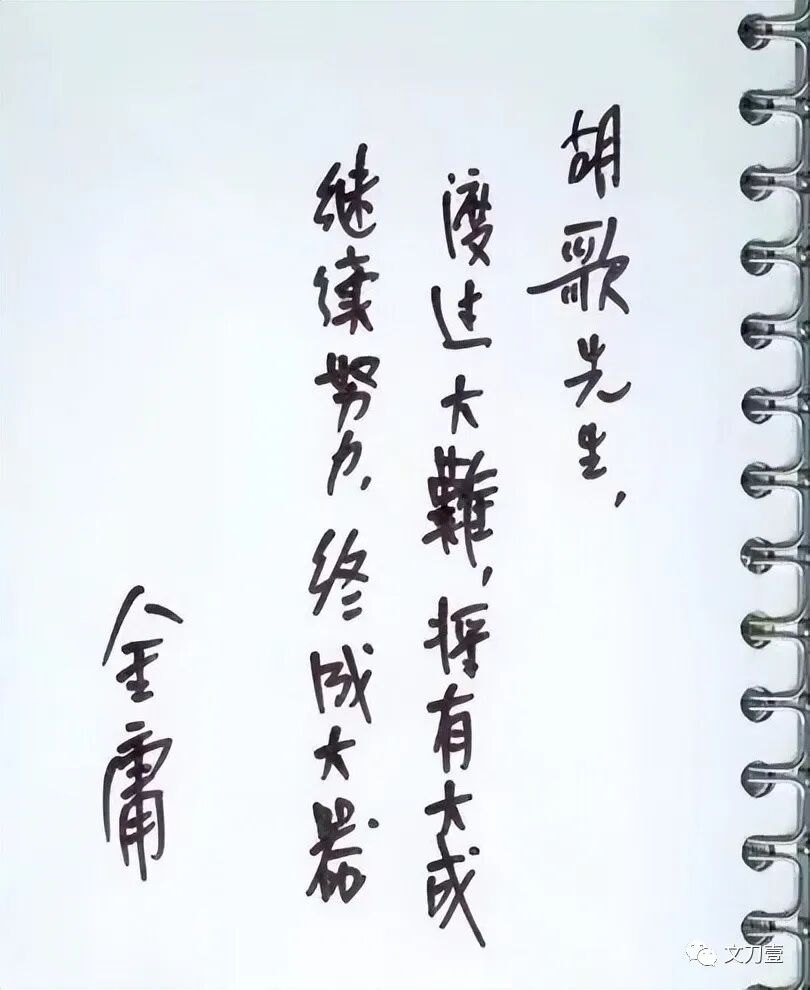 胡歌先生，
渡过大難，将有大成
继续努力，终成大器
金庸
文刀壹